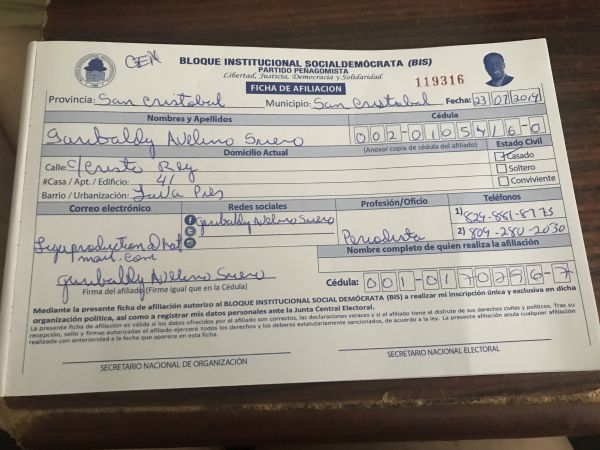 CEN
BLOQUE INSTITUCIONAL SOCIALDEMÓCRATA (BIS)
PARTIDO PENAGOMISTA
Libertad, Justicia, Democracia y Solidaridad
FICHA DE AFILIACION
119316
Provincia: San Cristobal Municipio: San Cristobal Fecha: 23/07/2019
Nombres y Apellidos Cédula
Garibaldy Avelino Suero 002-0105416-0
(Anexar copia de cédula del afiliado)
Domicilio Actual Estado Civil
Calle: C/ Cristo Rey Casado
#Casa / Apt. / Edificio: 41 Soltero
Barrio / Urbanización: Conviviente
Correo electrónico Redes sociales Profesión/Oficio Teléfonos
garibaldy Avelino Suero 1) 829-861-8775
Periodista 2) 809-280-2030
mail.com
Nombre completo de quien realiza la afiliación
garibaldy Avelino Suero
Firma del afiliado (Firme igual que en la Cédula) Cédula: 001-0170296-7
Mediante la presente ficha de afiliación autorizo al BLOQUE INSTITUCIONAL SOCIAL DEMÓCRATA (BIS) a realizar mi inscripción única y exclusiva en dicha
organización política, así como a registrar mis datos personales ante la Junta Central Electoral.
La presente ficha de afiliación es válida si los datos ofrecidos por el afiliado son correctos, las declaraciones veraces y si el afiliado tiene el disfrute de sus derechos civiles y políticos. Tras su
recepción, sello y firmas autorizadas el afiliado ejercerá todos los derechos y los deberes estatutariamente sancionados, de acuerdo a la ley. La presente afiliación anula cualquier afiliación
realizada con anterioridad a la fecha que aparece en esta ficha.
SECRETARIO NACIONAL DE ORGANIZACIÓN SECRETARIO NACIONAL ELECTORAL